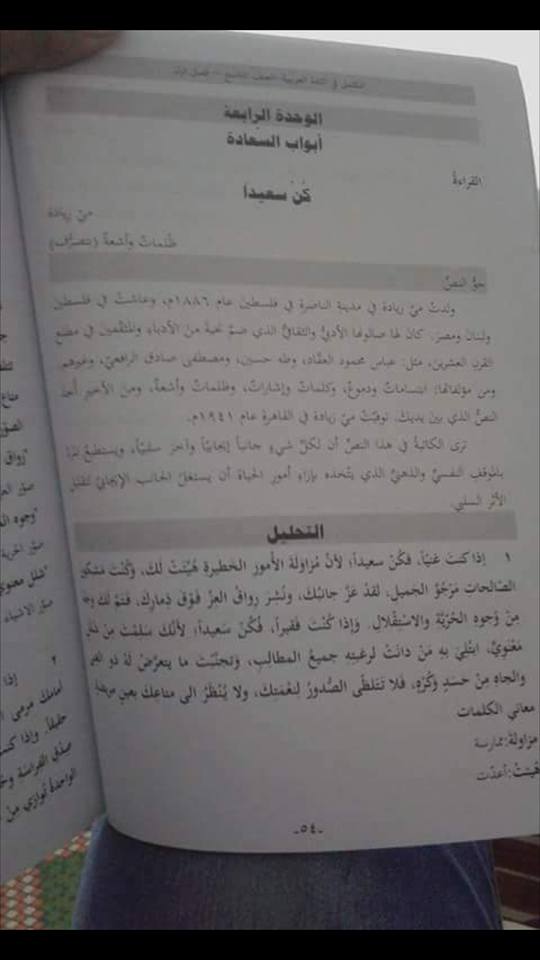 المكثف في اللغة العربية الصف التاسع - فصل أول
الوحدة الرابعة
أبواب السعادة
القراءة
كُنْ سعيداً
ميّ زيادة
ظلمات وأشعة (بتصرُّف)
جوُّ النصِّ
ولدتْ ميّ زيادة في مدينة الناصرة في فلسطين عام ١٨٨٦م، وعاشتْ في فلسطين
ولبنان ومصرَ. كانَ لها صالونها الأدبيُّ والثقافيُّ الذي ضمَّ نخبةً منَ الأدباءِ والمثقفين في مطلع
القرن العشرين، مثل: عباس محمود العقاد، وطه حسين، ومصطفى صادق الرافعيّ، وغيرهم.
ومن مؤلفاتها: ابتسامات ودموع، وكلمات وإشارات، وظلمات وأشعة، ومن الأخير أُخذ
النصُّ الذي بين يديك. توفيتْ ميّ زيادة في القاهرة عام ١٩٤١م.
ترى الكاتبة في هذا النصِّ أن لكلِّ شيءٍ جانباً إيجابياً وآخرَ سلبياً، ويستطيعُ المرءُ
بالموقفِ النفسيِّ والذهنيِّ الذي يتّخذه بإزاءِ أمورِ الحياة أن يستغلَّ الجانب الإيجابي لتقليل
الأثر السلبي.
التحليل
١ إذا كنتَ غنياً، فكُنْ سعيداً، لأنّ مُزاوَلةَ الأمورِ الخطيرةِ هُيِّئتْ لكَ، وكُنْتَ مَشكورَ
الصّالحاتِ مَرجُوَّ الجَميلِ، لقدْ عَزَّ جانبُكَ، ونُشِرَ رِواقُ العِزِّ فَوْقَ ذِمارِكَ، فتَمَّ لكَ وجهٌ
مِنْ وُجوهِ الحُرّيَّةِ والاستِقْلالِ. وإذا كُنْتَ فَقيراً، فَكُنْ سَعيداً؛ لأنَّكَ سَلِمْتَ مِنْ شَلَلٍ
مَعْنَوِيٍّ، ابتُلِيَ بهِ مَنْ دانَتْ لرغبتِهِ جميعُ المطالبِ، وتَجنَّبْتَ ما يتعرَّضُ لهُ ذو الغِنى
والجاهِ مِنْ حَسَدٍ وكُرْهٍ، فَلا تَتَلظّى الصُّدورُ لنِعْمَتِكَ، ولا يُنْظَرُ الى متاعِكَ بعينٍ مريضةٍ
معاني الكلمات
مزاولة: ممارسة
هُيِّئتْ: أُعدّت
-٥٤-